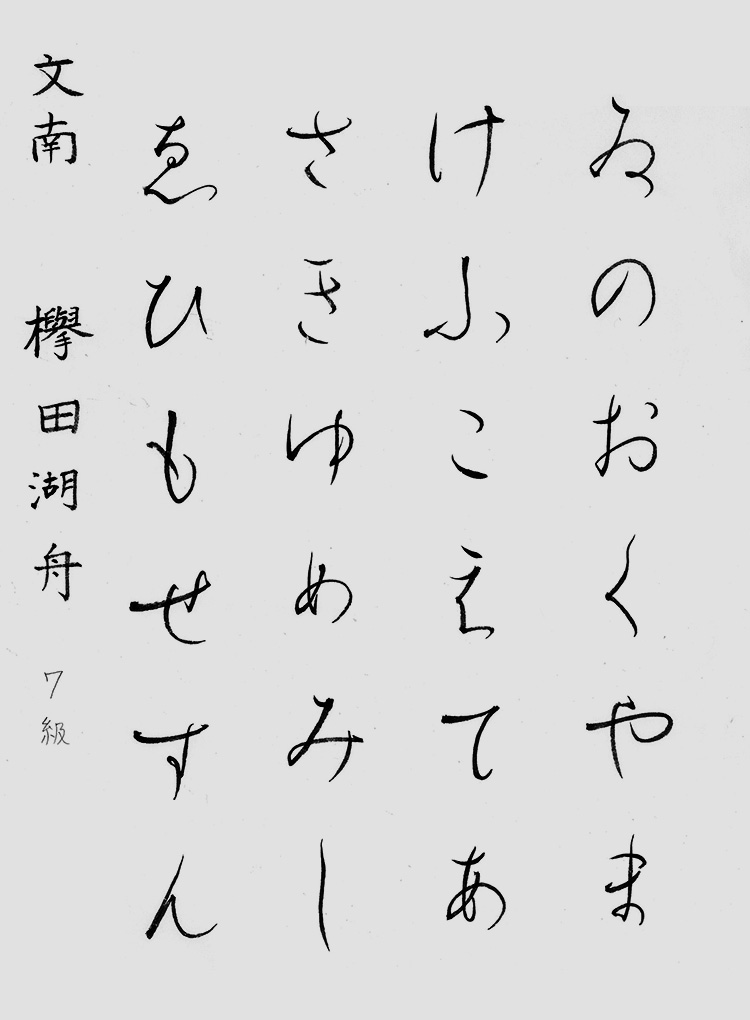 ゐのおくやま
けふこえてあ
さきゆめみし
ゑひもせすん
文南 欅田湖舟 7級